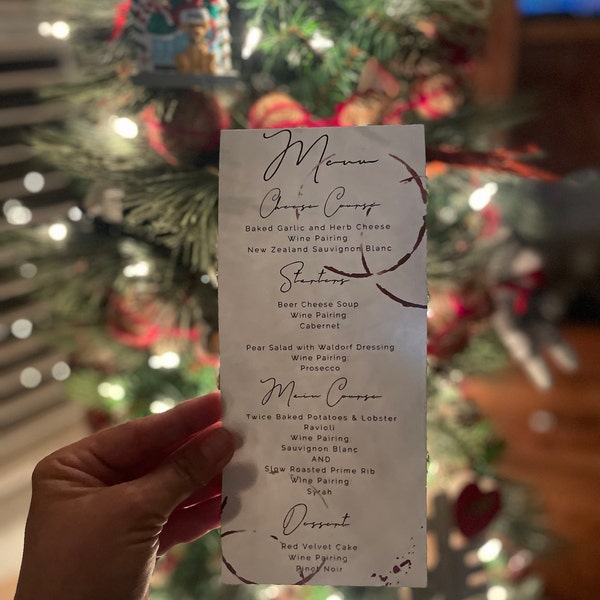 Menu
Cheese Course
Baked Garlic and Herb Cheese
Wine Pairing
New Zealand Sauvignon Blanc
Starters
Beer Cheese Soup
Wine Pairing
Cabernet
Pear Salad with Waldorf Dressing
Wine Pairing:
Prosecco
Main Course
Twice Baked Potatoes & Lobster
Ravioli
Wine Pairing
Sauvignon Blanc
AND
Slow Roasted Prime Rib
Wine Pairing
Syrah
Dessert
Red Velvet Cake
Wine Pairing
Pinot Noir